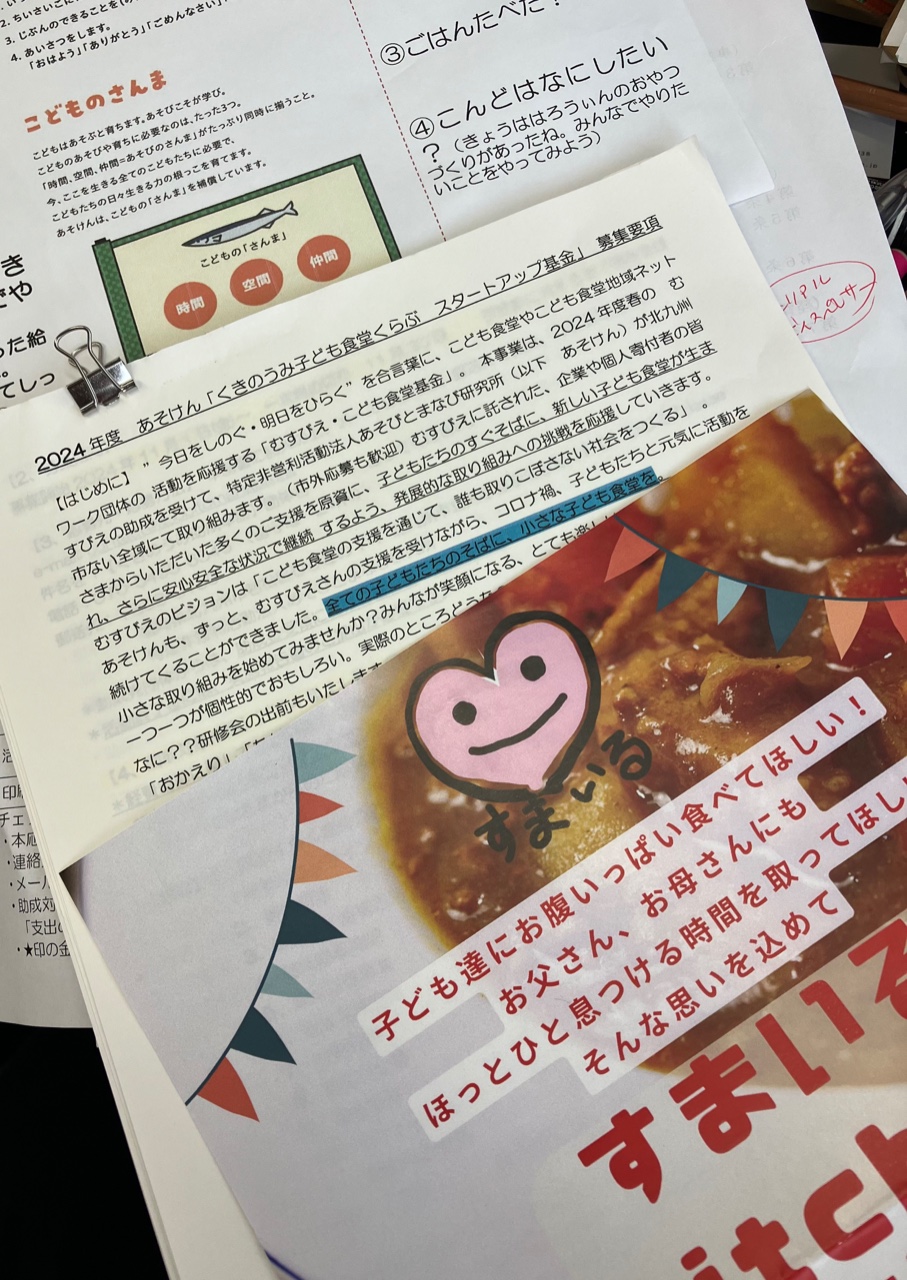 2. ちいさいこに
3. じぶんのできることを
4. あいさつをします。
「おはよう」「ありがとう」「ごめんなさい」
こどものさんま
こどもはあそぶと育ちます。あそびこそが学び。
こどものあそびや育ちに必要なのは、たった3つ。
「時間、空間、仲間=あそびのさんま」がたっぷり同時に揃うこと。
今、ここを生きる全てのこどもたちに必要で、
こどもたちの日々生きる力の根っこを育てます。
あそけんは、こどもの「さんま」を補償しています。
こどもの「さんま」
時間
空間
仲間
③ごはんたべた?
④こんどはなにしたい
?(きょうははろうぃんのおやつ
づくりがあったね。みんなでやりた
いことをやってみよう)
2024年度 あそけん「くきのうみ子ども食堂くらぶ スタートアップ基金」 募集要項
【はじめに】 ”今日をしのぐ・明日をひらく”を合言葉に、こども食堂やこども食堂地域ネット
ワーク団体の 活動を応援する「むすびえ・こども食堂基金」。本事業は、2024年度春の む
すびえの助成を受けて、特定非営利活動法人あそびとまなび研究所(以下 あそけん)が北九州
市ない全域にて取り組みます。(市外応募も歓迎)むすびえに託された、企業や個人寄付者の皆
さまからいただいた多くのご支援を原資に、子どもたちのすぐそばに、新しい子ども食堂が生ま
れ、さらに安心安全な状況で継続 するよう、発展的な取り組みへの挑戦を応援していきます。
むすびえのビジョンは「こども食堂の支援を通じて、誰も取りこぼさない社会をつくる」。
あそけんも、ずっと、むすびえさんの支援を受けながら、コロナ禍、子どもたちと元気に活動を
続けてくることができました。全ての子どもたちのそばに、小さな子ども食堂を。
小さな取り組みを始めてみませんか?みんなが笑顔になる、とても楽し
一つ一つが個性的でおもしろい。実際のところどう
なに??研修会の出前もいたします
「おかえり」
すまいる
子ども達にお腹いっぱい食べてほしい!
お父さん、お母さんにも
ほっとひと息つける時間を取ってほし
そんな思いを込めて
すまいる
itch
った給
てしっ
チェ
・連絡
・メー
・助成対
「支出
・★印の金